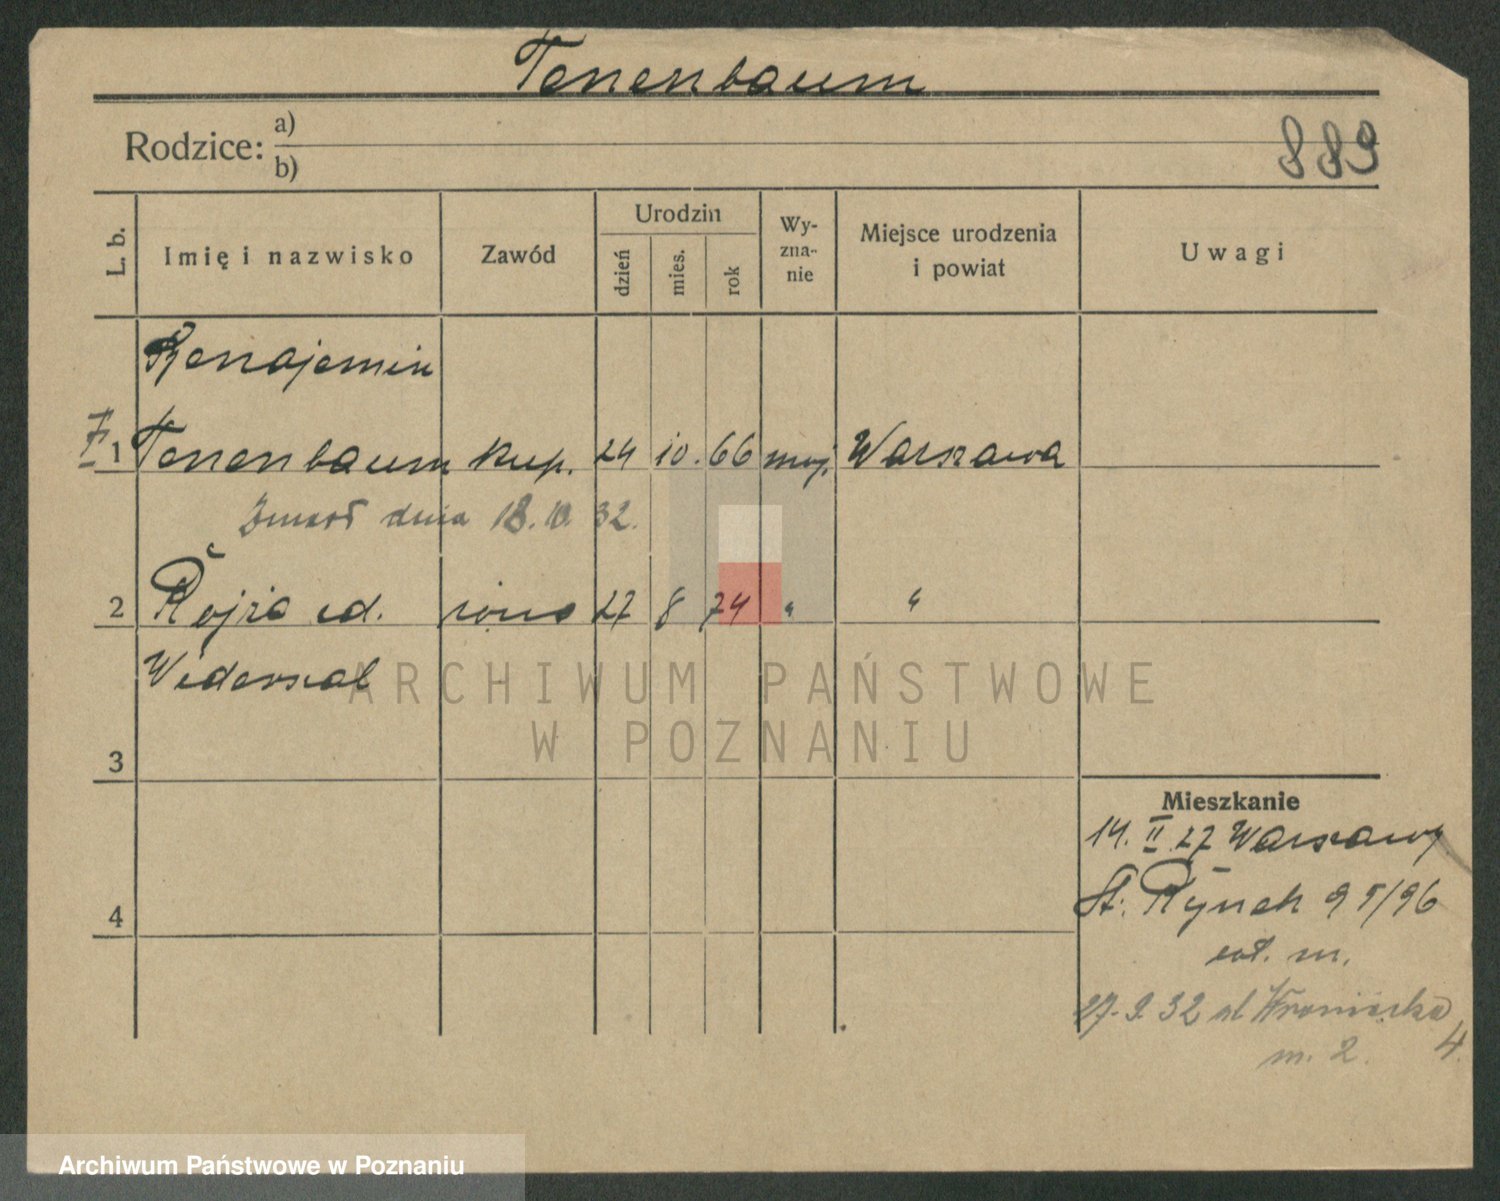 Tenenbaum
889
Rodzice: a)
b)
L. b. Imię i nazwisko Zawód Urodzin dzień mies. rok Wy-zna-nie Miejsce urodzenia i powiat Uwagi
Benajemin
1 Tenenbaum kup. 24 10. 66 moj. Warszawa
Zmarł dnia 18. 10. 32.
2 Rojza zd. żona 27 8 74 " "
Widerszal
3
4
Mieszkanie
14. II 27 Warszawy
St. Rynek 95/96
m.
27. 9. 32 ul Wroniecka 4.
m. 2.
ARCHIWUM PAŃSTWOWE
W POZNANIU
Archiwum Państwowe w Poznaniu